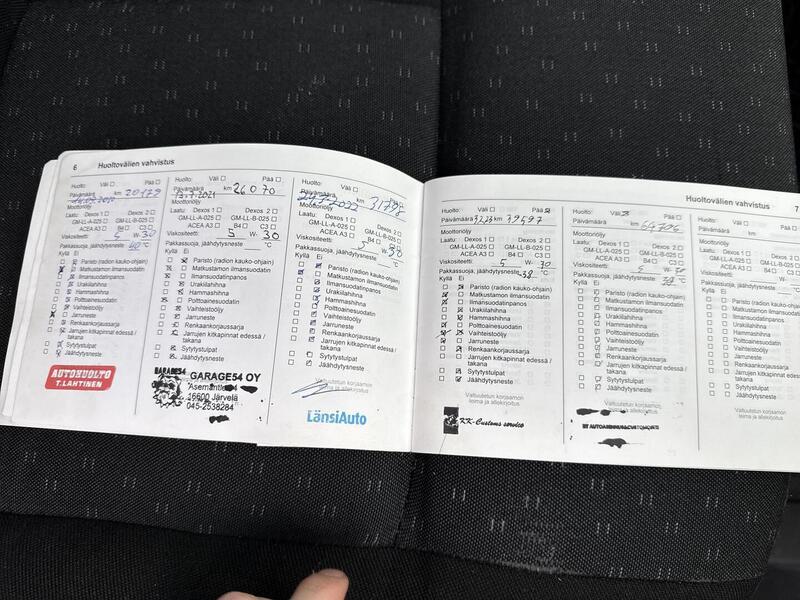 6 Huoltovälien vahvistus
Huolto: Väli Pää
Päivämäärä km 20179
Moottoriöljy
Laatu: Dexos 1 Dexos 2
GM-LL-A-025 GM-LL-B-025
ACEA A3 B4 C3
Viskositeetti 5 W- 30
Pakkassuoja, jäähdytysneste 40 °C
Kyllä Ei
Paristo (radion kauko-ohjain)
Matkustamon ilmansuodatin
Ilmansuodatinpanos
Urakiilahihna
Hammashihna
Polttoainesuodatin
Vaihteistoöljy
Jarruneste
Renkaankorjaussarja
Jarrujen kitkapinnat edessä / takana
Sytytystulpat
Jäähdytysneste
AUTOHUOLTO
T.LAHTINEN
Huolto: Väli Pää
Päivämäärä km 26070
13.7.2021
Moottoriöljy
Laatu: Dexos 1 Dexos 2
GM-LL-A-025 GM-LL-B-025
ACEA A3 B4 C3
Viskositeetti 5 W- 30
Pakkassuoja, jäähdytysneste °C
Kyllä Ei
Paristo (radion kauko-ohjain)
Matkustamon ilmansuodatin
Ilmansuodatinpanos
Urakiilahihna
Hammashihna
Polttoainesuodatin
Vaihteistoöljy
Jarruneste
Renkaankorjaussarja
Jarrujen kitkapinnat edessä /
takana
Sytytystulpat
Jäähdytysneste
GARAGE54
GARAGE54 OY
Asemantie
16600 Järvelä
045-2538284
Huolto: Väli Pää
Päivämäärä km 31798
Moottoriöljy
Laatu: Dexos 1 Dexos 2
GM-LL-A-025 GM-LL-B-025
ACEA A3 B4 C3
Viskositeetti 5 W- 30
Pakkassuoja, jäähdytysneste °C
Kyllä Ei
Paristo (radion kauko-ohjain)
Matkustamon ilmansuodatin
Ilmansuodatinpanos
Urakiilahihna
Hammashihna
Polttoainesuodatin
Vaihteistoöljy
Jarruneste
Renkaankorjaussarja
Jarrujen kitkapinnat edessä /
takana
Sytytystulpat
Jäähdytysneste
Valtuutetun korjaamon
leima ja allekirjoitus
LänsiAuto
Huoltovälien vahvistus 7
Huolto: Väli Pää
Päivämäärä km 39597
Moottoriöljy
Laatu: Dexos 1 Dexos 2
GM-LL-A-025 GM-LL-B-025
ACEA A3 B4 C3
Viskositeetti 5 W- 30
Pakkassuoja, jäähdytysneste -38 °C
Kyllä Ei
Paristo (radion kauko-ohjain)
Matkustamon ilmansuodatin
Ilmansuodatinpanos
Urakiilahihna
Hammashihna
Polttoainesuodatin
Vaihteistoöljy
Jarruneste
Renkaankorjaussarja
Jarrujen kitkapinnat edessä /
takana
Sytytystulpat
Jäähdytysneste
Valtuutetun korjaamon
leima ja allekirjoitus
KK-Customs service
Huolto: Väli Pää
Päivämäärä km
Moottoriöljy
Laatu: Dexos 1 Dexos 2
GM-LL-A-025 GM-LL-B-025
ACEA A3 B4 C3
Viskositeetti 5 W- 30
Pakkassuoja, jäähdytysneste °C
Kyllä Ei
Paristo (radion kauko-ohjain)
Matkustamon ilmansuodatin
Ilmansuodatinpanos
Urakiilahihna
Hammashihna
Polttoainesuodatin
Vaihteistoöljy
Jarruneste
Renkaankorjaussarja
Jarrujen kitkapinnat edessä /
takana
Sytytystulpat
Jäähdytysneste
Valtuutetun korjaamon
leima ja allekirjoitus
Huolto: Väli
Päivämäärä
Moottoriöljy
Laatu: Dexos 1
GM-LL-A-025
ACEA A3
Viskositeetti
Pakkassuoja, jäähdytysneste
Kyllä Ei
Paristo (radion kauko-ohjain)
Matkustamon ilmansuodatin
Ilmansuodatinpanos
Urakiilahihna
Hammashihna
Polttoainesuodatin
Vaihteistoöljy
Jarruneste
Renkaankorjaussarja
Jarrujen kitkapinnat edessä /
takana
Sytytystulpat
Jäähdytysneste
Valtuutetun korjaamon
leima ja allekirjoitus